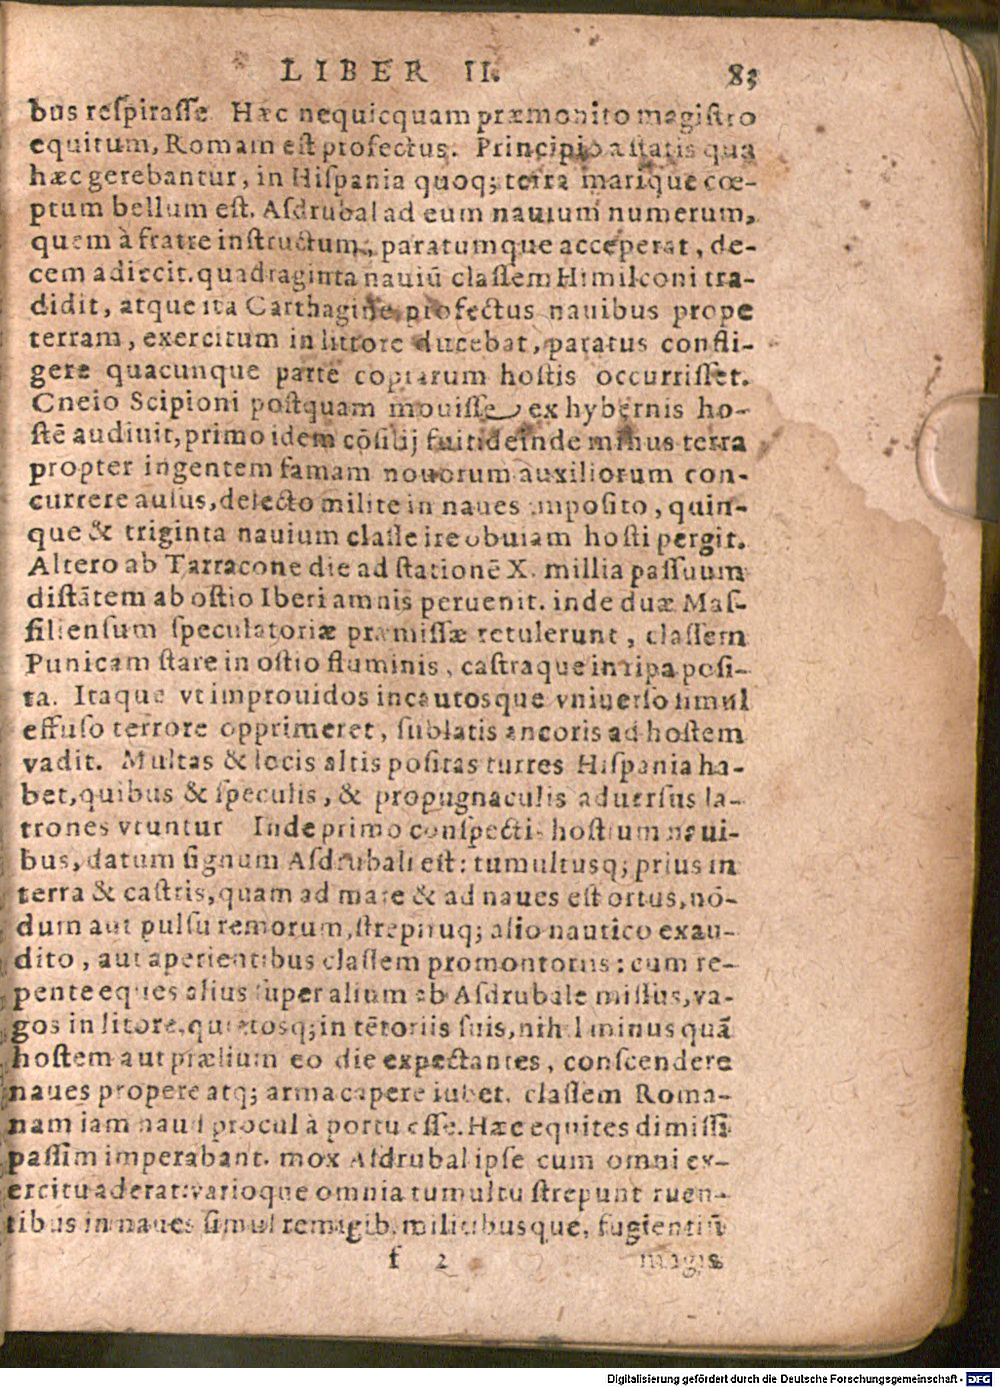 LIBER II. 83
bus respirasse. Hæc nequicquam præmonito magistro
equitum, Romam est profectus. Principio æstatis qua
hæc gerebantur, in Hispania quoq; terra marique cœ-
ptum bellum est. Asdrubal ad eum nauium numerum,
quem à fratre instructum, paratumque acceperat, de-
cem adiecit. quadraginta nauiū classem Himilconi tra-
didit, atque ita Carthagine profectus nauibus prope
terram, exercitum in littore ducebat, paratus confli-
gere quacunque parte copiarum hostis occurrisset.
Cneio Scipioni postquam mouisse ex hybernis ho-
stē audiuit, primo idem cōsilij fuit: deinde minus terra
propter ingentem famam nouorum auxiliorum con-
currere ausus, delecto milite in naues imposito, quin-
que & triginta nauium classe ire obuiam hosti pergit.
Altero ab Tarracone die ad stationē X. millia passuum
distātem ab ostio Iberi amnis peruenit. inde duæ Mas-
siliensum speculatoriæ præmissæ retulerunt, classem
Punicam stare in ostio fluminis, castraque in ripa posi-
ta. Itaque vt improuidos incautosque vniuerso simul
effuso terrore opprimeret, sublatis ancoris ad hostem
vadit. Multas & locis altis positas turres Hispania ha-
bet, quibus & speculis, & propugnaculis aduersus la-
trones vtuntur Inde primo conspectis hostium naui-
bus, datum signum Asdrubali est: tumultusq; prius in
terra & castris, quam ad mare & ad naues est ortus, nō-
dum aut pulsu remorum, strepituq; alio nautico exau-
dito, aut aperientibus classem promontoriis: cum re-
pente eques alius super alium ab Asdrubale missus, va-
gos in litore, quietosq; in tētoriis suis, nihil minus quā
hostem aut prælium eo die expectantes, conscendere
naues propere atq; arma capere iubet. classem Roma-
nam iam haud procul à portu esse. Hæc equites dimissi
passim imperabant. mox Asdrubal ipse cum omni ex-
ercitu aderat: varioque omnia tumultu strepunt ruen-
tibus in naues simul remigib. militibusque, fugientiū
f 2 magis
Digitalisierung gefördert durch die Deutsche Forschungsgemeinschaft - DFG